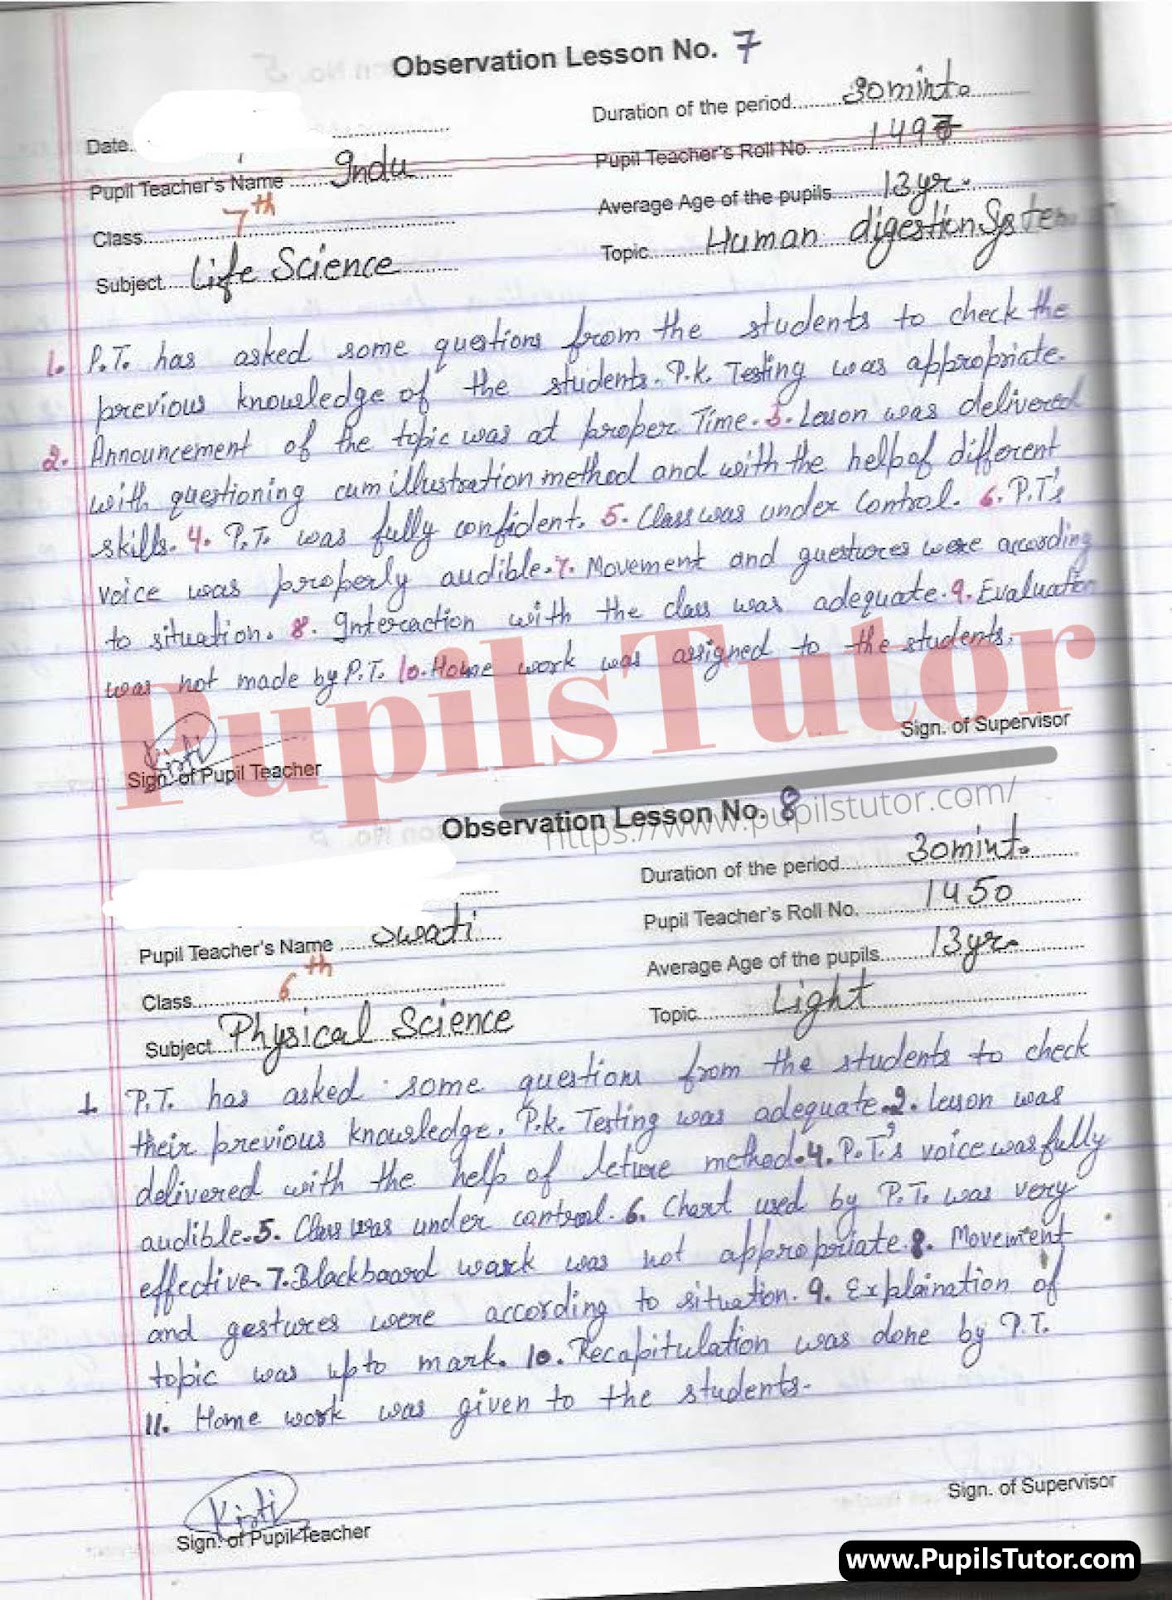 Observation Lesson No. 7
Date.
Duration of the period 30mint.
Pupil Teacher's Name Indu
Pupil Teacher's Roll No. 1497
Class 7th
Average Age of the pupils 13yr.
Subject Life Science
Topic Human digestion System
1. P.T. has asked some questions from the students to check the
previous knowledge of the students. P.K. Testing was appropriate.
2. Announcement of the topic was at proper Time. 3. Lesson was delivered
with questioning cum illustration method and with the help of different
skills. 4. P.T. was fully confident. 5. Class was under control. 6. P.T's
voice was properly audible. 7. Movement and guestures were according
to situation. 8. Interaction with the class was adequate. 9. Evaluation
was not made by P.T. 10. Home work was assigned to the students.
PupilsTutor
Kirti
Sign. of Pupil Teacher
Sign. of Supervisor
https://www.pupilstutor.com/
Observation Lesson No. 8
Duration of the period 30mint.
Pupil Teacher's Name Swati
Pupil Teacher's Roll No. 1450
Class 6th
Average Age of the pupils 13yr.
Subject Physical Science
Topic Light
1. P.T. has asked some questions from the students to check
their previous knowledge. P.K. Testing was adequate. 2. Lesson was
delivered with the help of lcture method. 4. P.T.'s voice was fully
audible. 5. Class was under control. 6. Chart used by P.T. was very
effective. 7. Blackboard work was not appropriate. 8. Movement
and gestures were according to situation. 9. Explaination of
topic was upto mark. 10. Recapitulation was done by P.T.
11. Home work was given to the students.
Kirti
Sign. of Pupil Teacher
Sign. of Supervisor
www.PupilsTutor.com